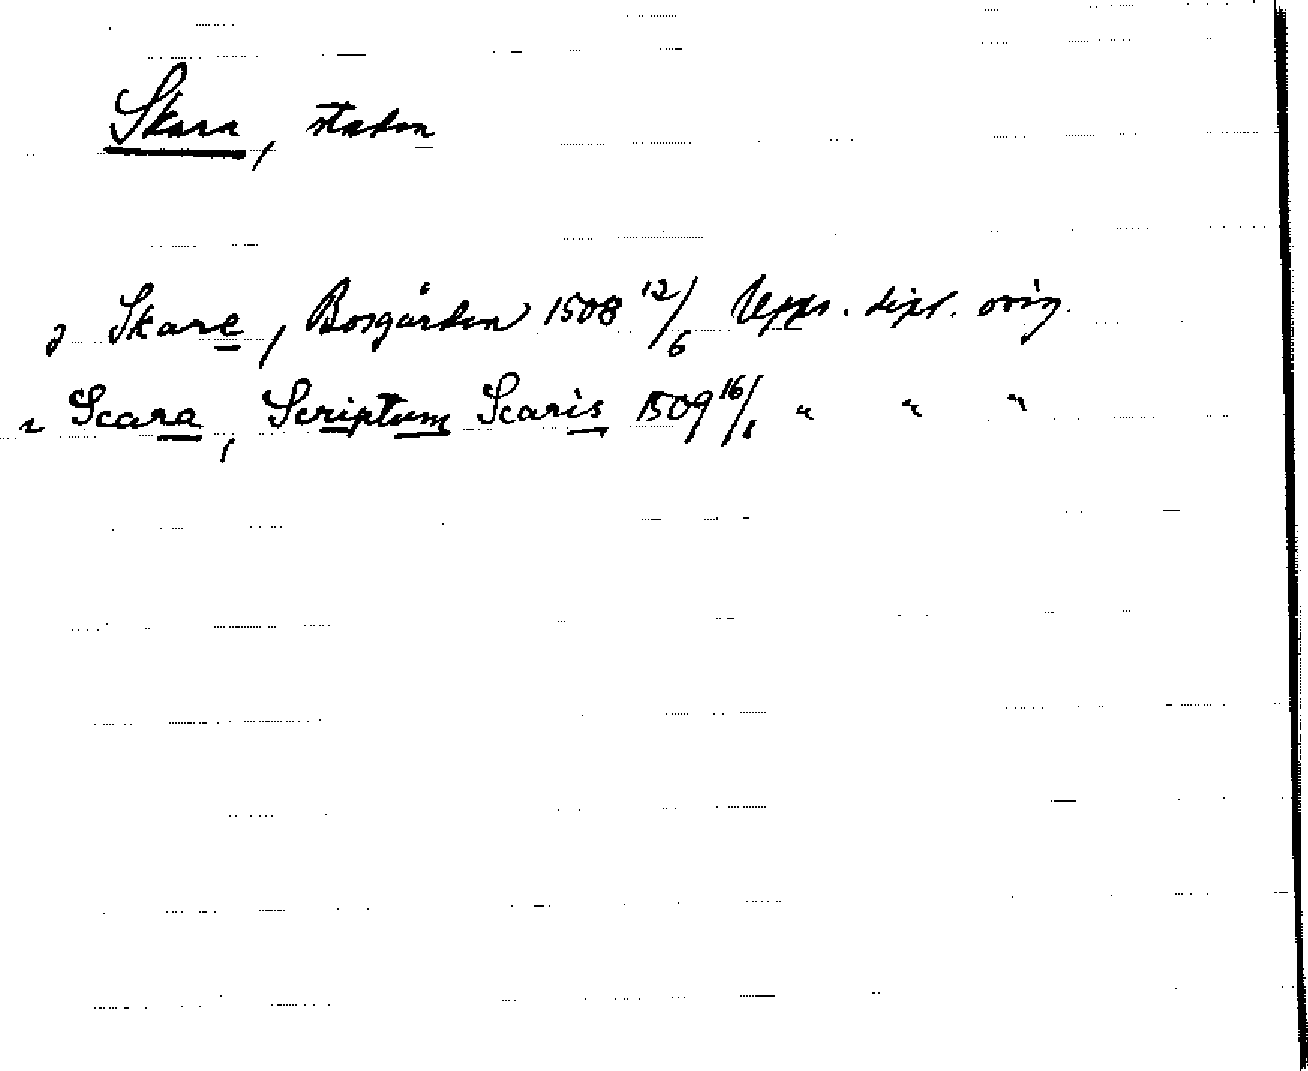 Skara, staden
J Skare, Bosgården 1508 12/6 Upps. dipl. orig.
" Scara, Scriptum Scaris 1509 16/8 " " "